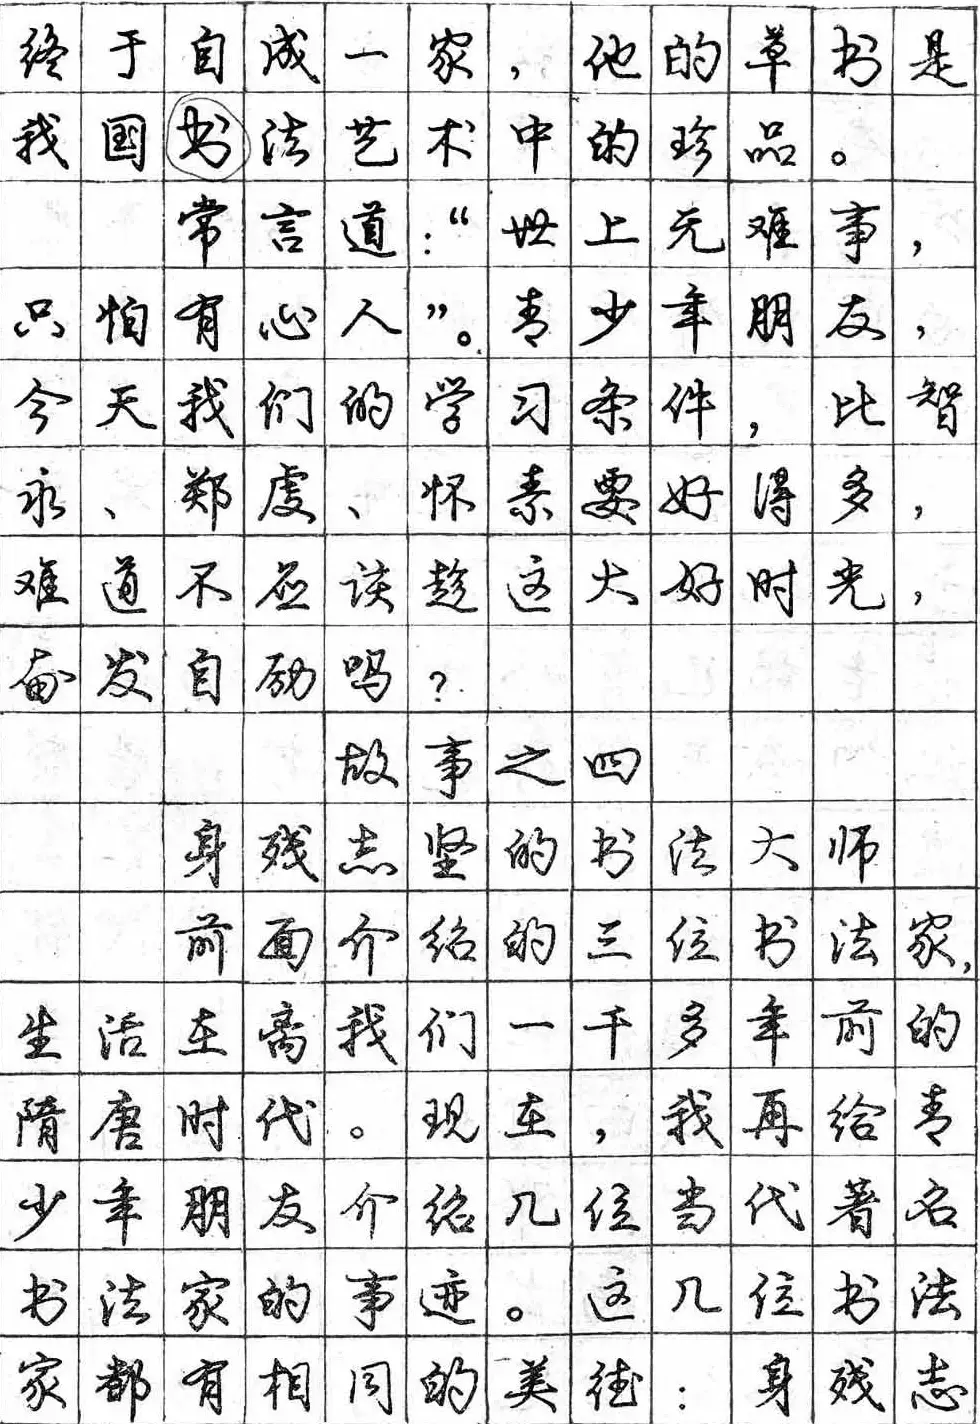 终于自成一家，他的草书是
我国书法艺术中的珍品。
常言道：“世上无难事，
只怕有心人”。青少年朋友，
今天我们的学习条件，比智
永、郑虔、怀素要好得多，
难道不应该趁这大好时光，
奋发自励吗？
故事之四
身残志坚的书法大师
前面介绍的三位书法家，
生活在离我们一千多年前的
隋唐时代。现在，我再给青
少年朋友介绍几位当代著名
书法家的事迹。这几位书法
家都有相同的美德：身残志